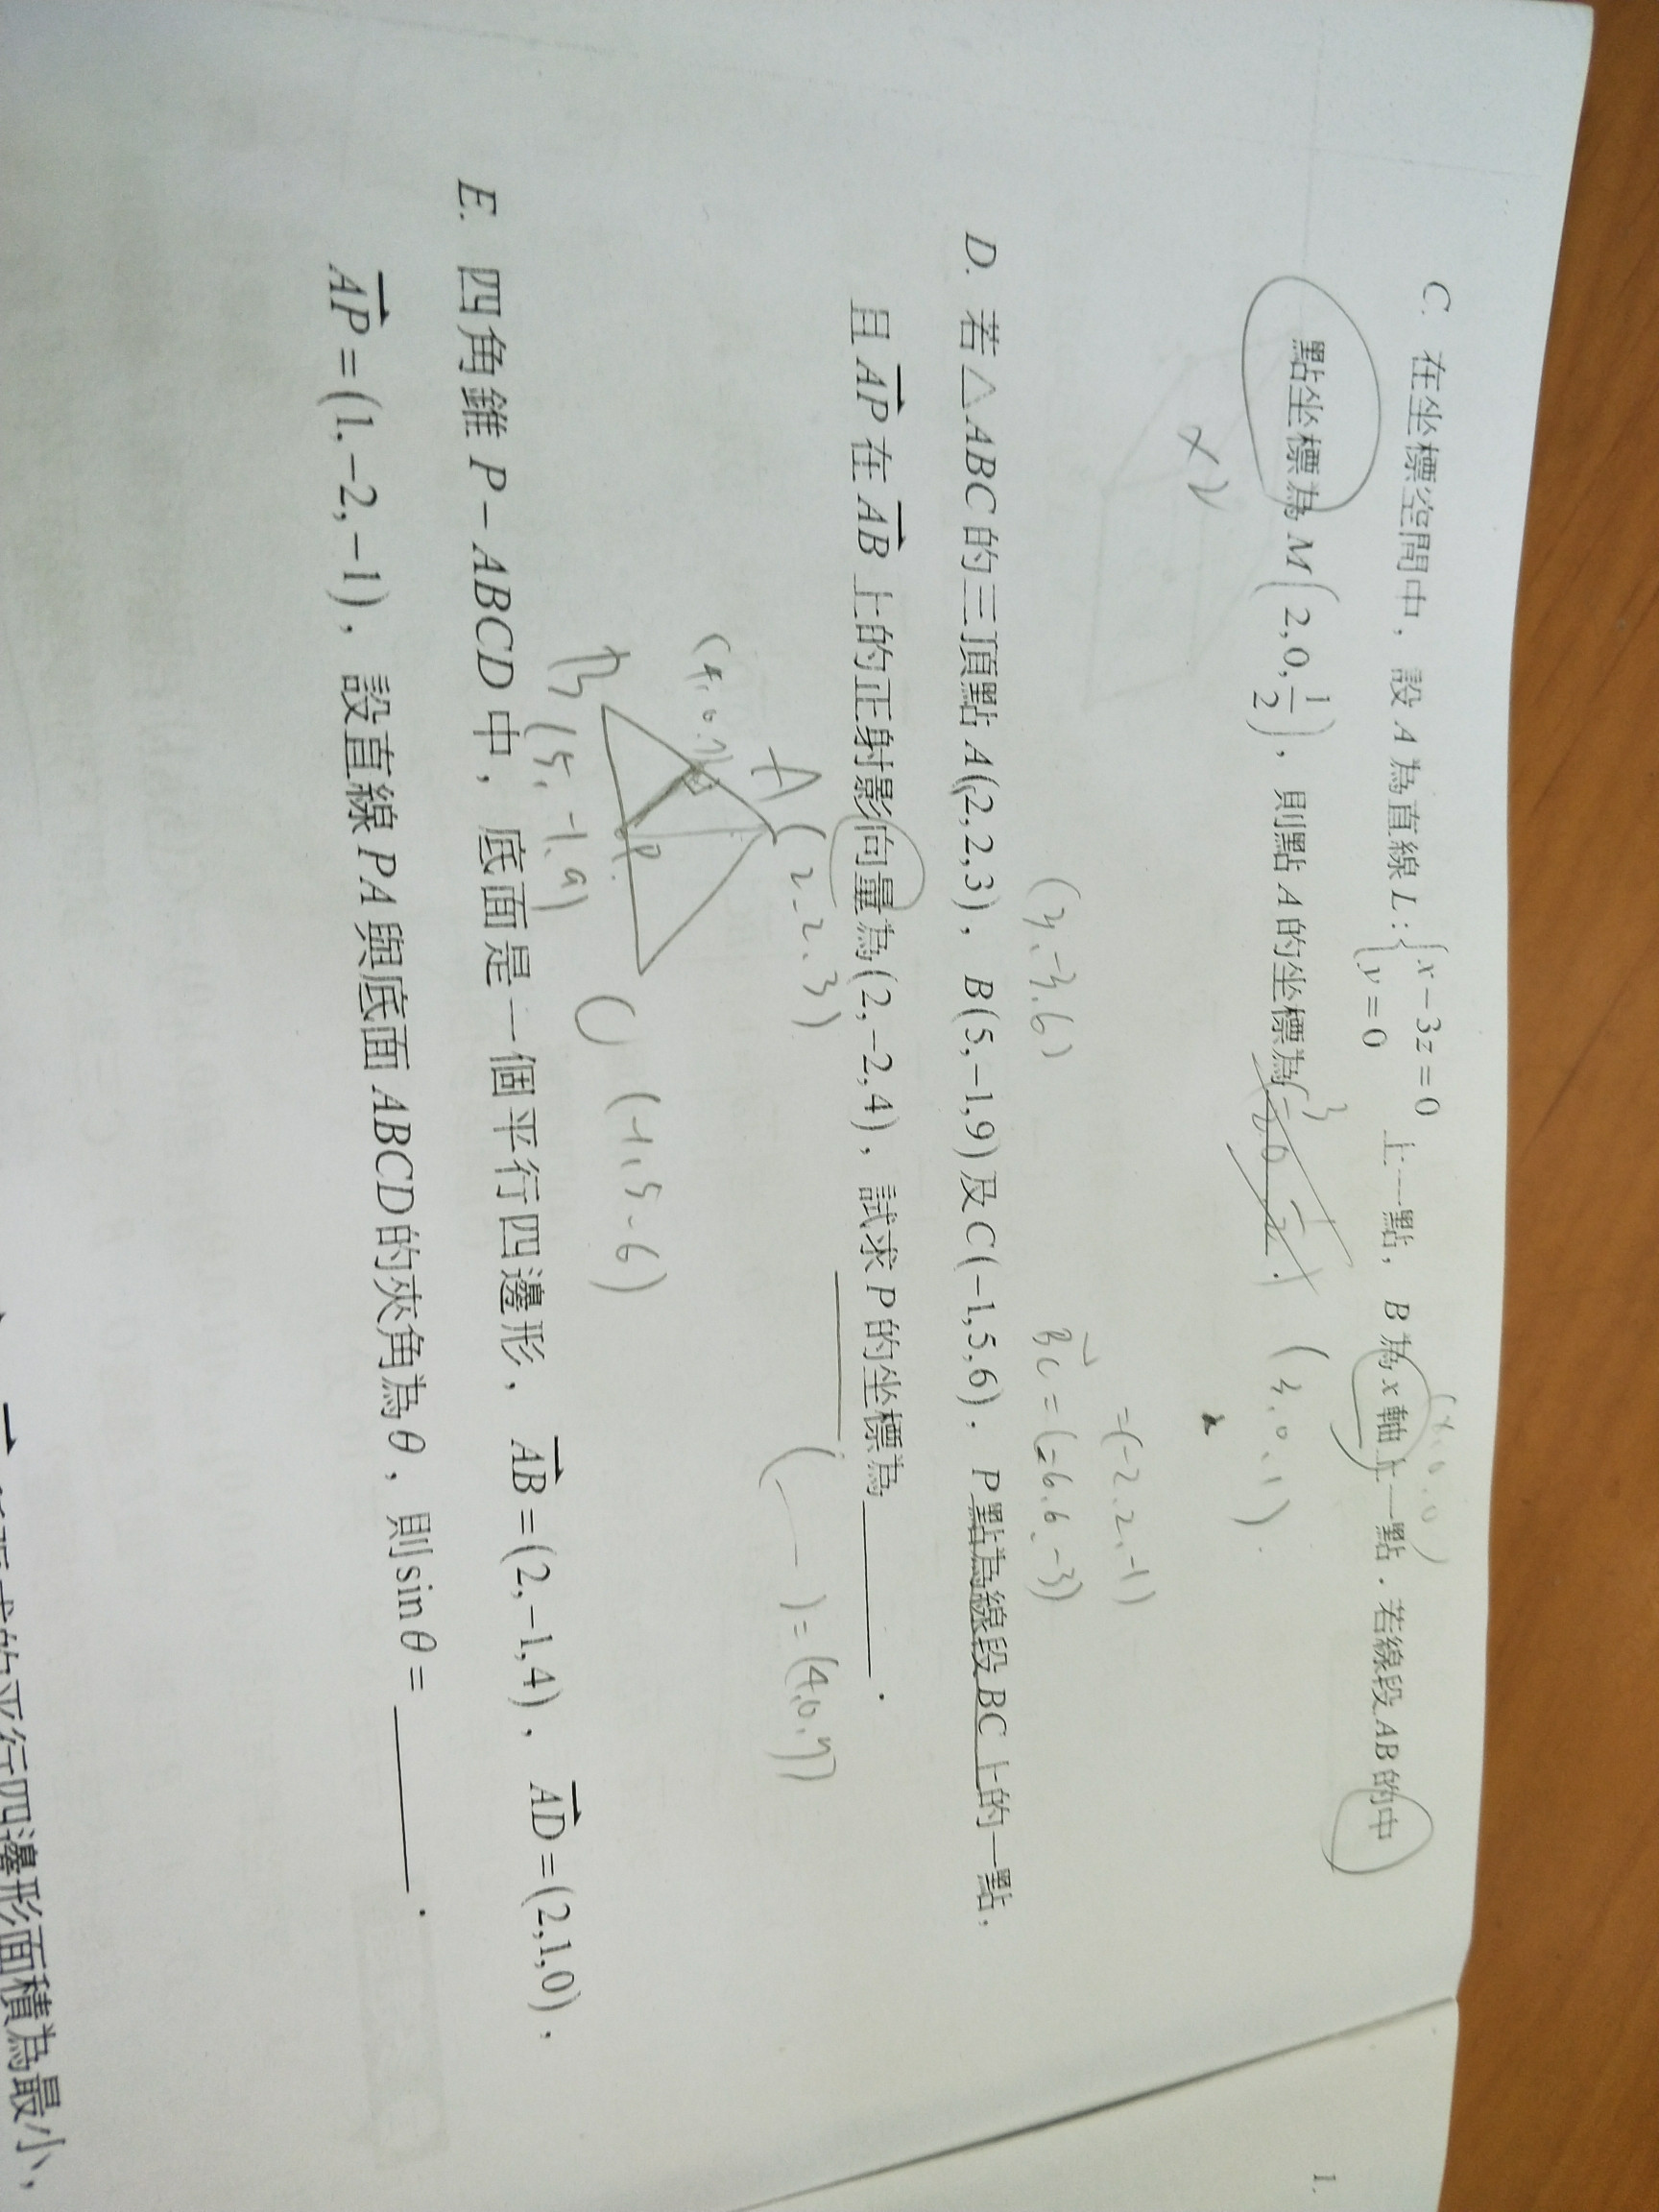 C. 在坐標空間中，設 A 為直線 L : { x − 3z = 0 上一點，B 為 x 軸上一點．若線段 AB 的中
y = 0
(x, 0, 0)
點坐標為 M(2, 0, 1/2)，則點 A 的坐標為
(3, 0, 1)
= (-2, 2, -1)
(3, -3, 6)
BC = (-6, 6, -3)
D. 若 △ABC 的三頂點 A(2, 2, 3)，B(5, −1, 9) 及 C(−1, 5, 6)．P 點為線段 BC 上的一點，
且 AP 在 AB 上的正射影向量為 (2, −2, 4)，試求 P 的坐標為 ______．
A (2, 2, 3)
( ) = (4, 0, 7)
(4, 0, 7)
P
B (5, -1, 9)
C (-1, 5, 6)
E. 四角錐 P − ABCD 中，底面是一個平行四邊形，AB = (2, −1, 4)，AD = (2, 1, 0)，
AP = (1, −2, −1)，設直線 PA 與底面 ABCD 的夾角為 θ，則 sin θ = ______．
的平行四邊形面積為最小，
1.